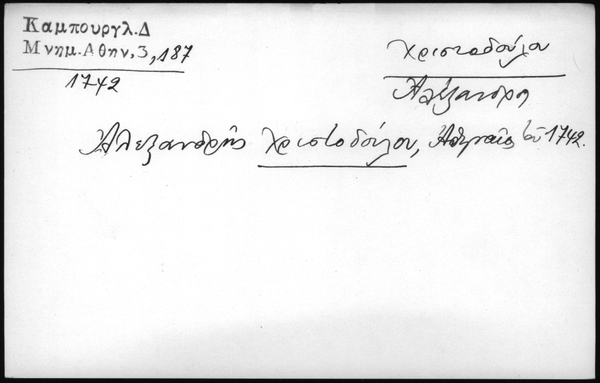 Καμπουργλ.Δ
Μνημ.Αθην,3,187
1742
Χριστοδούλου
Αλέξανδρος
Αλεξανδρής Χριστοδούλου, Αθηναίος 1742.